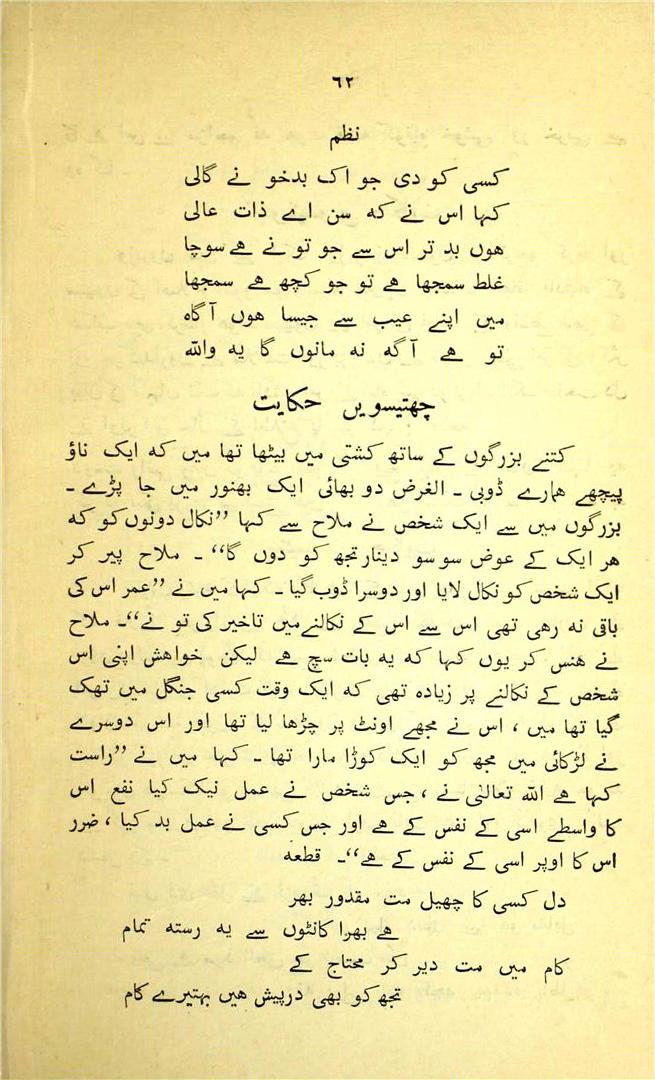 ٦٢
نظم
کسی کو دی جو اک بدخو نے گالی
کہا اس نے کہ سن اے ذات عالی
ہوں بد تر اس سے جو تو نے ہے سوچا
غلط سمجھا ہے تو جو کچھ ہے سمجھا
میں اپنے عیب سے جیسا ہوں آگاہ
تو ہے آگہ نہ مانوں گا یہ واللہ
چھتیسویں حکایت
کتنے بزرگوں کے ساتھ کشتی میں بیٹھا تھا میں کہ ایک ناؤ
پیچھے ہمارے ڈوبی ۔ الغرض دو بھائی ایک بھنور میں جا پڑے ۔
بزرگوں میں سے ایک شخص نے ملاح سے کہا ”نکال دونوں کو کہ
ہر ایک کے عوض سو سو دینار تجھ کو دوں گا“ ۔ ملاح پیر کر
ایک شخص کو نکال لایا اور دوسرا ڈوب گیا ۔ کہا میں نے ”عمر اس کی
باقی نہ رہی تھی اس سے اس کے نکالنے میں تاخیر کی تو نے“۔ ملاح
نے ہنس کر یوں کہا کہ یہ بات سچ ہے لیکن خواہش اپنی اس
شخص کے نکالنے پر زیادہ تھی کہ ایک وقت کسی جنگل میں تھک
گیا تھا میں ، اس نے مجھے اونٹ پر چڑھا لیا تھا اور اس دوسرے
نے لڑکائی میں مجھ کو ایک کوڑا مارا تھا ۔ کہا میں نے ”راست
کہا ہے اللہ تعالیٰ نے ، جس شخص نے عمل نیک کیا نفع اس
کا واسطے اسی کے نفس کے ہے اور جس کسی نے عمل بد کیا ، ضرر
اس کا اوپر اسی کے نفس کے ہے“۔ قطعہ
دل کسی کا چھیل مت مقدور بھر
ہے بھرا کانٹوں سے یہ رستہ تمام
کام میں مت دیر کر محتاج کے
تجھ کو بھی درپیش ہیں بہتیرے کام